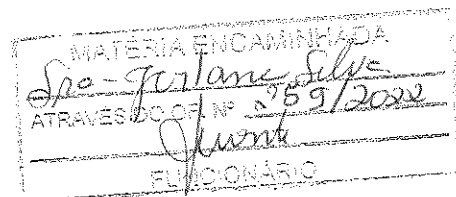 MATÉRIA ENCAMINHADA
Silva
ATRAVÉS DO OF. Nº 259/2022
FUNCIONÁRIO